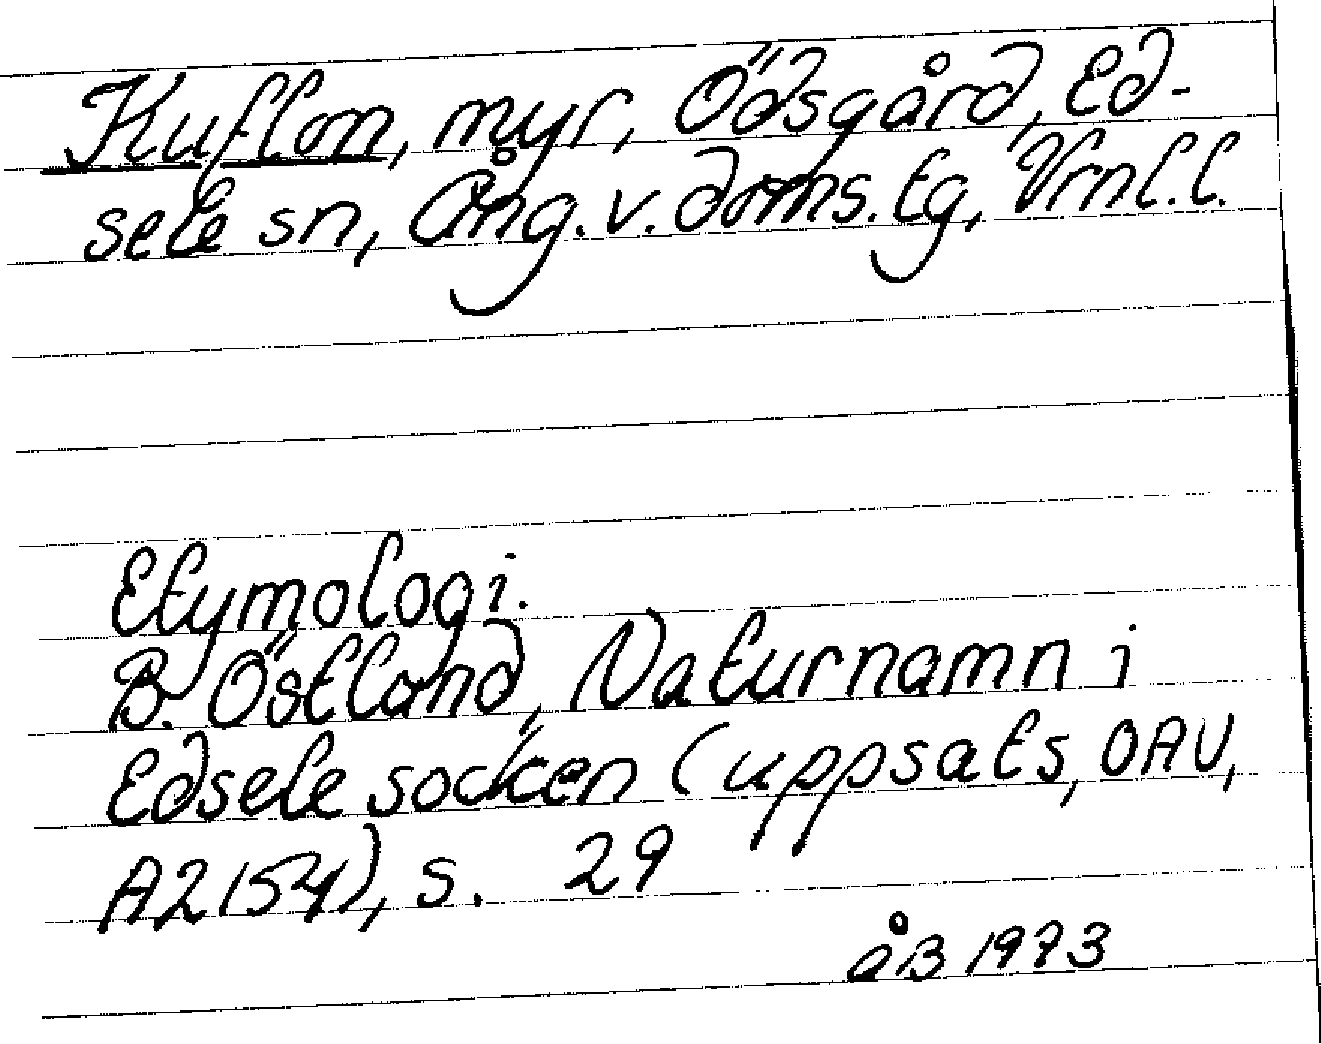 Kuflon, myr, Ödsgård, Ed-
sele sn, Ång. v. doms. tg, Vrnl. l.
Etymologi.
B. Östland, Naturnamn i
Edsele socken (uppsats, OAU,
A2154), s. 29
ÅB 1973